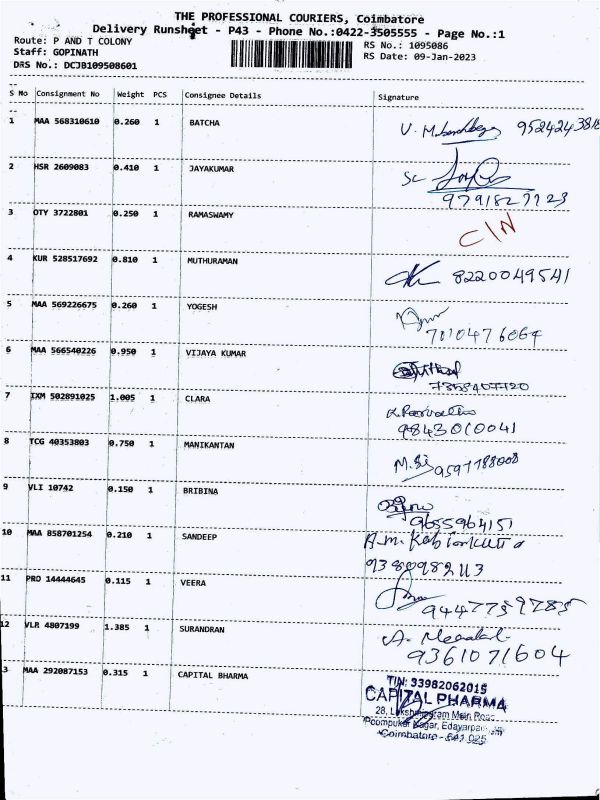 THE PROFESSIONAL COURIERS, Coimbatore
Delivery Runsheet - P43 - Phone No.:0422-3505555 - Page No.:1
Route: P AND T COLONY
Staff: GOPINATH
DRS No.: DCJB109508601
RS No.: 1095086
RS Date: 09-Jan-2023
S No Consignment No Weight PCS Consignee Details Signature
1 MAA 568310610 0.260 1 BATCHA
2 HSR 2609083 0.410 1 JAYAKUMAR
3 OTY 3722801 0.250 1 RAMASWAMY C/N
4 KUR 528517692 0.810 1 MUTHURAMAN 8220049541
5 MAA 569226675 0.260 1 YOGESH 7010476064
6 MAA 566540226 0.950 1 VIJAYA KUMAR 7358407720
7 IXM 502891025 1.005 1 CLARA
9843010041
8 TCG 40353803 0.750 1 MANIKANTAN 9597788008
9 VLI 10742 0.150 1 BRIBINA
9655964151
10 MAA 858701254 0.210 1 SANDEEP
11 PRO 14444645 0.115 1 VEERA
12 VLR 4807199 1.385 1 SURANDRAN
9361071604
3 MAA 292087153 0.315 1 CAPITAL BHARMA
TIN: 33982062015
CAPITAL PHARMA
28, Main Road
Nagar,
Coimbatore - 641 025